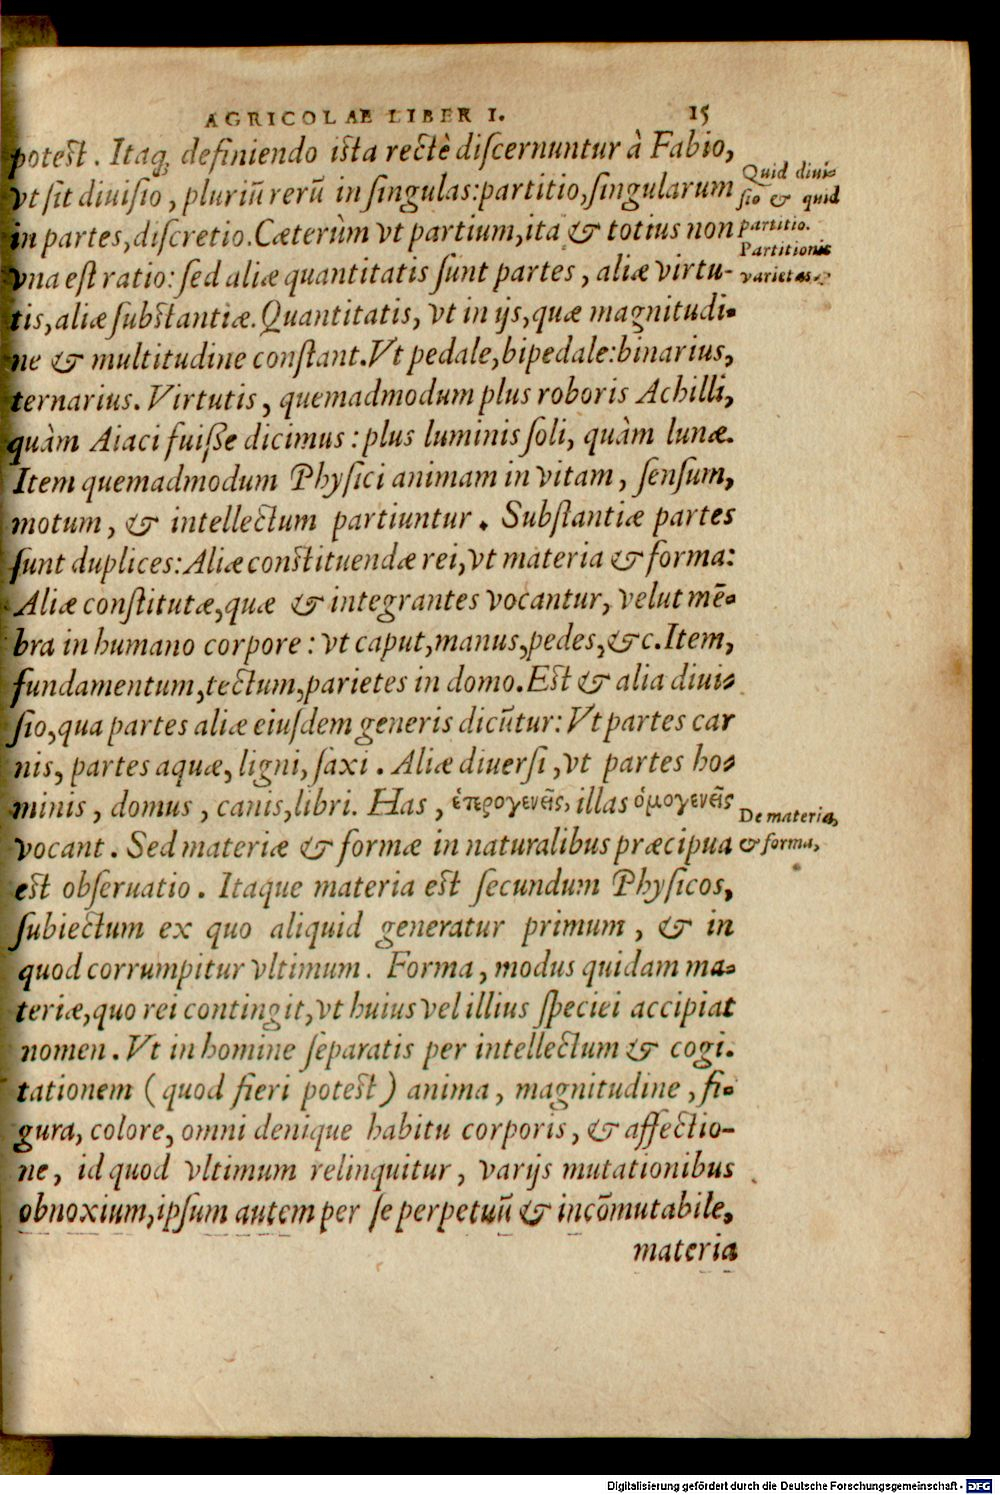 AGRICOLAE LIBER I. 15
potest. Itaq; definiendo ista rectè discernuntur à Fabio,
vt sit diuisio, pluriũ rerũ in singulas: partitio, singularum
in partes, discretio. Cæterùm vt partium, ita & totius non
vna est ratio: sed aliæ quantitatis sunt partes, aliæ virtu-
tis, aliæ substantiæ. Quantitatis, vt in ijs, quæ magnitudi-
ne & multitudine constant. Vt pedale, bipedale: binarius,
ternarius. Virtutis, quemadmodum plus roboris Achilli,
quàm Aiaci fuisse dicimus: plus luminis soli, quàm lunæ.
Item quemadmodum Physici animam in vitam, sensum,
motum, & intellectum partiuntur. Substantiæ partes
sunt duplices: Aliæ constituendæ rei, vt materia & forma:
Aliæ constitutæ, quæ & integrantes vocantur, velut mẽ-
bra in humano corpore: vt caput, manus, pedes, &c. Item,
fundamentum, tectum, parietes in domo. Est & alia diui-
sio, qua partes aliæ eiusdem generis dicũtur: Vt partes car
nis, partes aquæ, ligni, saxi. Aliæ diuersi, vt partes ho-
minis, domus, canis, libri. Has, ἑτερογενεῖς, illas ὁμογενεῖς
vocant. Sed materiæ & formæ in naturalibus præcipua
est obseruatio. Itaque materia est secundum Physicos,
subiectum ex quo aliquid generatur primum, & in
quod corrumpitur vltimum. Forma, modus quidam ma-
teriæ, quo rei contingit, vt huius vel illius speciei accipiat
nomen. Vt in homine separatis per intellectum & cogi-
tationem (quod fieri potest) anima, magnitudine, fi-
gura, colore, omni denique habitu corporis, & affectio-
ne, id quod vltimum relinquitur, varijs mutationibus
obnoxium, ipsum autem per se perpetuũ & incõmutabile,
materia
Quid diui-
sio & quid
partitio.
Partitionis
varietas.
De materia,
& forma,
Digitalisierung gefördert durch die Deutsche Forschungsgemeinschaft - DFG